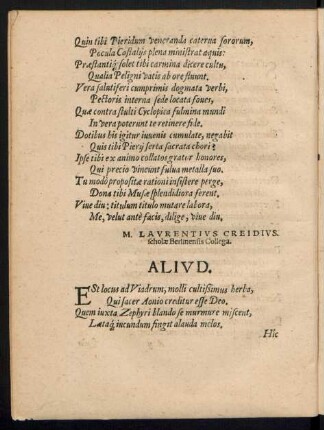 Quin tibi Pieridum veneranda caterua sororum,
Pocula Castalijs plena ministrat aquis:
Præstantiq́; solet tibi carmina dicere cultu,
Qualia Peligni vatis ab ore fluunt.
Vera salutiferi cumprimis dogmata verbi,
Pectoris interna sede locata foues,
Quæ contra stulti Cyclopica fulmina mundi
In vera poterunt te retinere fide.
Dotibus his igitur iuuenis cumulate, negabit
Quis tibi Pierij serta sacrata chori?
Ipse tibi ex animo collatos grator honores,
Qui precio vincunt fulua metalla suo.
Tu modo propositæ rationi insistere perge,
Dona tibi Musæ splendidiora ferent,
Viue diu: titulum titulo mutare labora,
Me, velut antè facis, dilige, viue diu,
M. LAVRENTIVS CREIDIVS.
scholæ Berlinensis Collega.
ALIVD.
ESt locus ad Viadrum, molli cultissimus herba,
Qui sacer Aonio creditur esse Deo,
Quem iuxta Zephyri blando se murmure miscent,
Lætaq́; iucundum fingit alauda melos,
Hîc